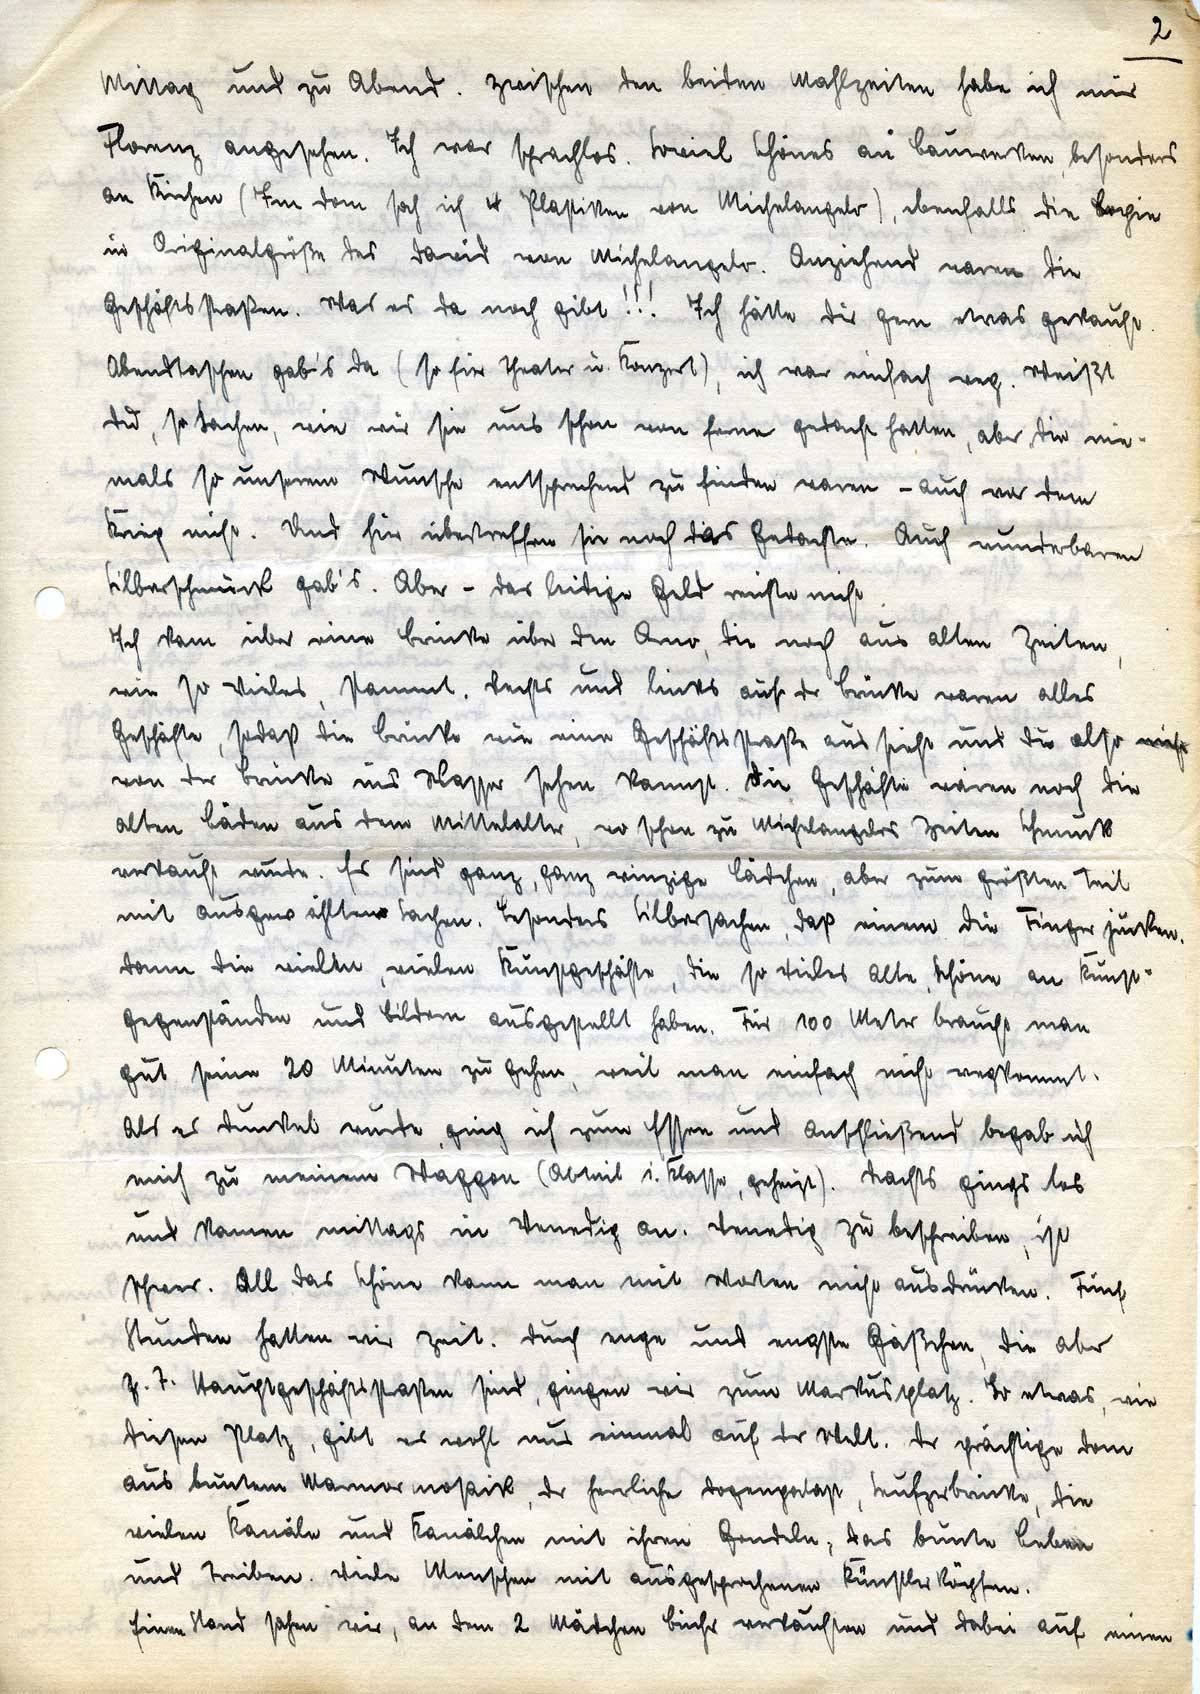 2
Mittag und zu Abend. Zwischen den beiden Mahlzeiten habe ich mir
Florenz angesehen. Ich war sprachlos. Soviel Schönes an Bauwerken, besonders
an Kirchen (Im Dom sah ich 4 Plastiken von Michelangelo), ebenfalls die Kopie
in Originalgröße des David von Michelangelo. Anziehend waren die
Geschäftsstraßen. Was es da noch gibt!!! Ich hätte dir gern etwas gekauft.
Abendtaschen gab's da (so für Theater u. Konzert), ich war einfach weg. Weißt
Du, so Sachen, wie wir sie uns schon von ferne gedacht hatten, aber die nie-
mals so unserem Wunsche entsprechend zu finden waren – auch vor dem
Krieg nicht. Und hier übertreffen sie noch das Gedachte. Auch wunderbaren
Silberschmuck gab's. Aber – das leidige Geld reichte nicht.
Ich kam über eine Brücke über den Arno, die noch aus alten Zeiten,
wie so vieles, stammt. Rechts und links auf der Brücke waren alles
Geschäfte, sodaß die Brücke wie eine Geschäftsstraße aussieht und du also nicht
von der Brücke ins Wasser sehen kannst. Die Geschäfte waren noch die
alten Läden aus dem Mittelalter, wo schon zu Michelangelos Zeiten Schmuck
verkauft wurde. Es sind ganz, ganz winzige Lädchen, aber zum größten Teil
mit ausgewählten Sachen. Besonders Silbersachen, daß einem die Finger jucken.
Dann die vielen, vielen Kunstgeschäfte, die so vieles Alte, Schöne an Kunst-
gegenständen und Bildern ausgestellt haben. Für 100 Meter braucht man
gut seine 20 Minuten zu gehen, weil man einfach nicht wegkommt.
Als es dunkel wurde, ging ich zum Essen und anschließend begab ich
mich zu meinem Waggon (Abteil 1. Klasse, geheizt). Nachts gings los
und kamen mittags in Venedig an. Venedig zu beschreiben, ist
schwer. All das Schöne kann man mit Worten nicht ausdrücken. Fünf
Stunden hatten wir Zeit. Durch enge und engste Gäßchen, die aber
z.T. Hauptgeschäftsstraßen sind, gingen wir zum Markusplatz. So etwas, wie
diesen Platz, gibt es wohl nur einmal auf der Welt. Der prächtige Dom
aus buntem Marmormosaik, der herrliche Dogenpalast, Seufzerbrücke, die
vielen Kanäle und Kanälchen mit ihren Gondeln, das bunte Leben
und Treiben. Viele Menschen mit ausgesprochenen Künstlerköpfen.
Einen Stand sahen wir, an dem 2 Mädchen Bücher verkauften und dabei auf einen